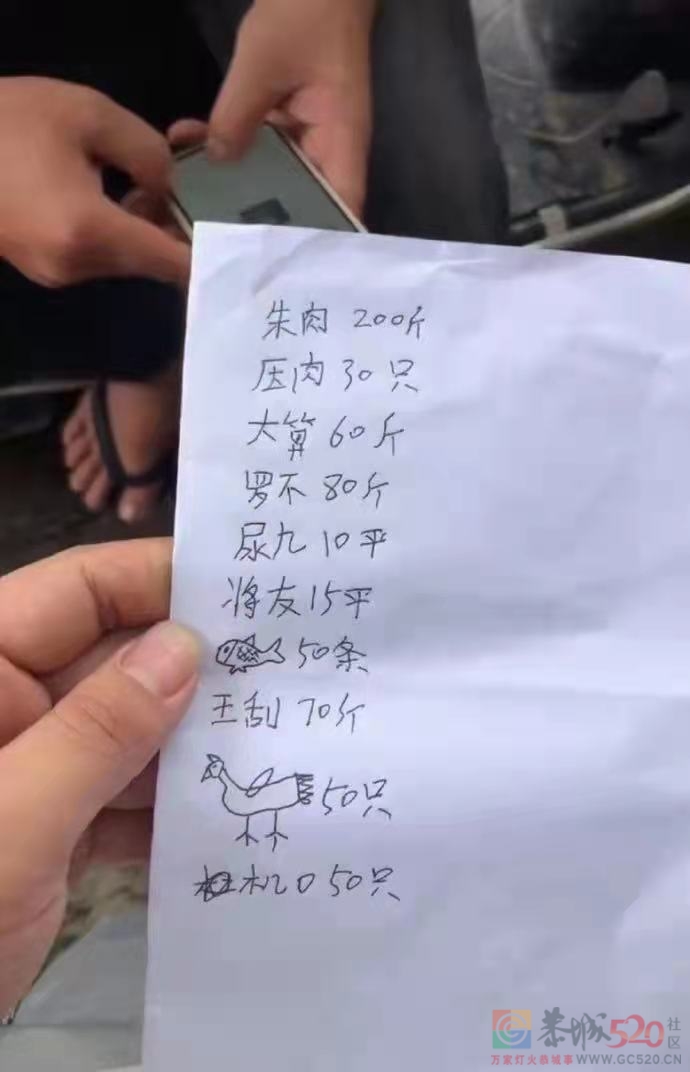 朱肉 200斤
压肉 30只
大算 60斤
罗不 80斤
尿九 10平
将友 15平
50条
王刮 70斤
50只
机口 50只
恭城520社区
万家灯火恭城事 WWW.GC520.CN